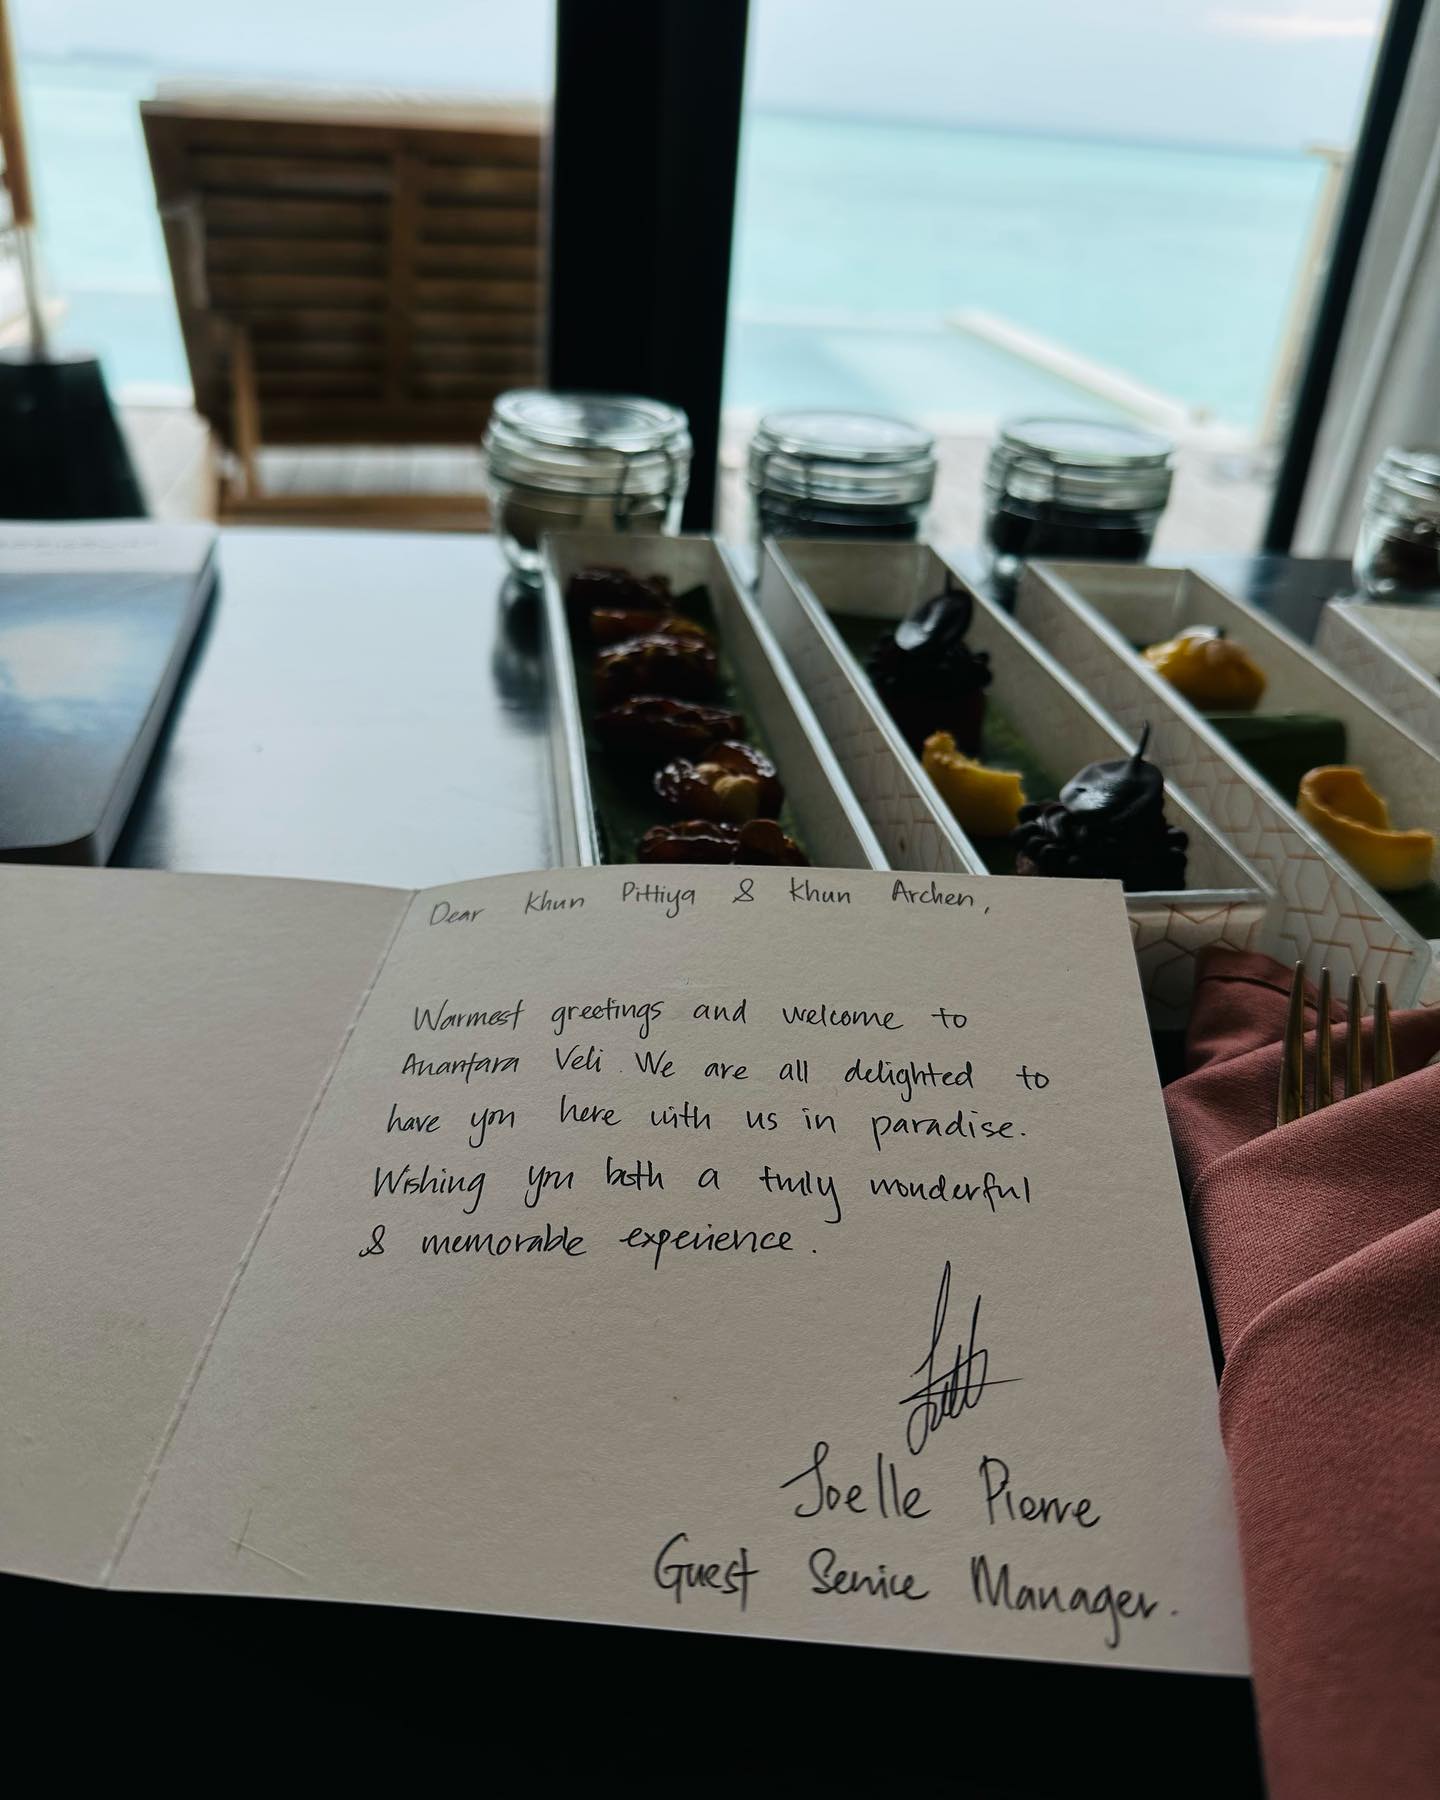 Dear Khun Pittiya & Khun Archen,
Warmest greetings and welcome to
Anantara Veli. We are all delighted to
have you here with us in paradise.
Wishing you both a truly wonderful
& memorable experience.
Joelle Pierre
Guest Service Manager.